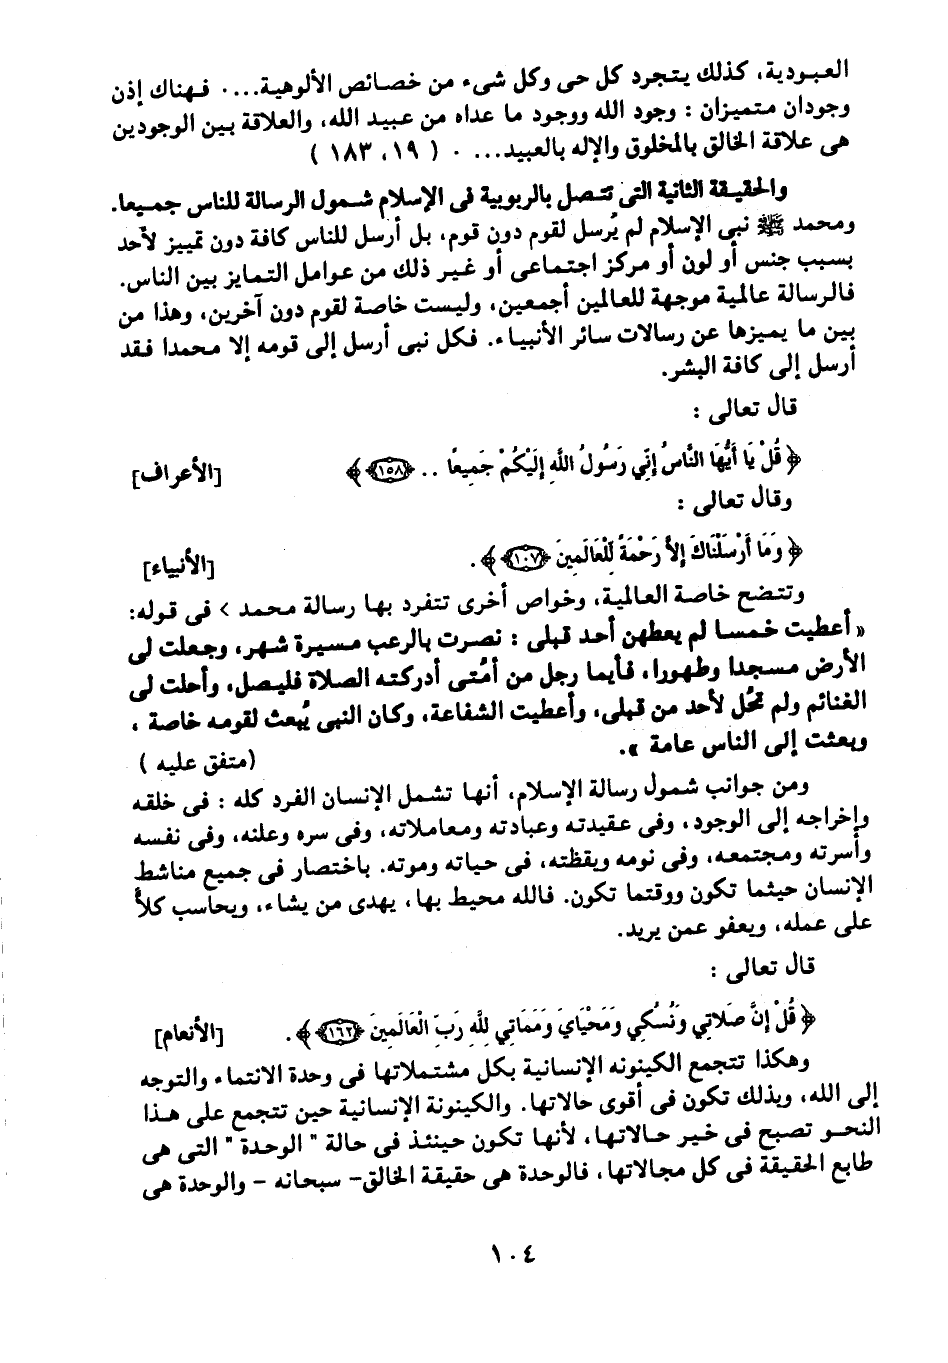 العبودية، كذلك يتجرد كل حى وكل شىء من خصائص الألوهية.... فهناك إذن
وجودان متميزان : وجود الله ووجود ما عداه من عبيد الله، والعلاقة بين الوجودين
هى علاقة الخالق بالمخلوق والإله بالعبيد.... ( ١٩، ١٨٣ )
والحقيقة الثانية التى تتصل بالربوبية فى الإسلام شمول الرسالة للناس جميعا.
ومحمد ﷺ نبى الإسلام لم يُرسل لقوم دون قوم، بل أرسل للناس كافة دون تمييز لأحد
بسبب جنس أو لون أو مركز اجتماعى أو غير ذلك من عوامل التمايز بين الناس.
فالرسالة عالمية موجهة للعالمين أجمعين، وليست خاصة لقوم دون آخرين، وهذا من
بين ما يميزها عن رسالات سائر الأنبياء. فكل نبى أرسل إلى قومه إلا محمدا فقد
أرسل إلى كافة البشر.
قال تعالى :
﴿ قُلْ يَا أَيُّهَا النَّاسُ إِنِّي رَسُولُ اللَّهِ إِلَيْكُمْ جَمِيعًا .. ﴿١٥٨﴾ ﴾ [الأعراف]
وقال تعالى :
﴿ وَمَا أَرْسَلْنَاكَ إِلاَّ رَحْمَةً لِّلْعَالَمِينَ ﴿١٠٧﴾ ﴾. [الأنبياء]
وتتضح خاصة العالمية، وخواص أخرى تتفرد بها رسالة محمد > فى قوله:
« أعطيت خمسا لم يعطهن أحد قبلى : نصرت بالرعب مسيرة شهر، وجعلت لى
الأرض مسجدا وطهورا، فأيما رجل من أمَّتى أدركته الصلاة فليصل، وأحلت لى
الغنائم ولم تحُل لأحد من قبلى، وأعطيت الشفاعة، وكان النبى يُبعث لقومه خاصة ،
وبعثت إلى الناس عامة ». (متفق عليه )
ومن جوانب شمول رسالة الإسلام، أنها تشمل الإنسان الفرد كله : فى خلقه
وإخراجه إلى الوجود، وفى عقيدته وعبادته ومعاملاته، وفى سره وعلنه، وفى نفسه
وأسرته ومجتمعه، وفى نومه ويقظته، فى حياته وموته. باختصار فى جميع مناشط
الإنسان حيثما تكون ووقتما تكون. فالله محيط بها، يهدى من يشاء، ويحاسب كلاً
على عمله، ويعفو عمن يريد.
قال تعالى :
﴿ قُلْ إِنَّ صَلاتِي وَنُسُكِي وَمَحْيَايَ وَمَمَاتِي لِلَّهِ رَبِّ الْعَالَمِينَ ﴿١٦٢﴾ ﴾. [الأنعام]
وهكذا تتجمع الكينونه الإنسانية بكل مشتملاتها فى وحدة الانتماء والتوجه
إلى الله، وبذلك تكون فى أقوى حالاتها. والكينونة الإنسانية حين تتجمع على هذا
النحو تصبح فى خير حالاتها، لأنها تكون حينئذ فى حالة " الوحدة " التى هى
طابع الحقيقة فى كل مجالاتها، فالوحدة هى حقيقة الخالق- سبحانه - والوحدة هى
١٠٤